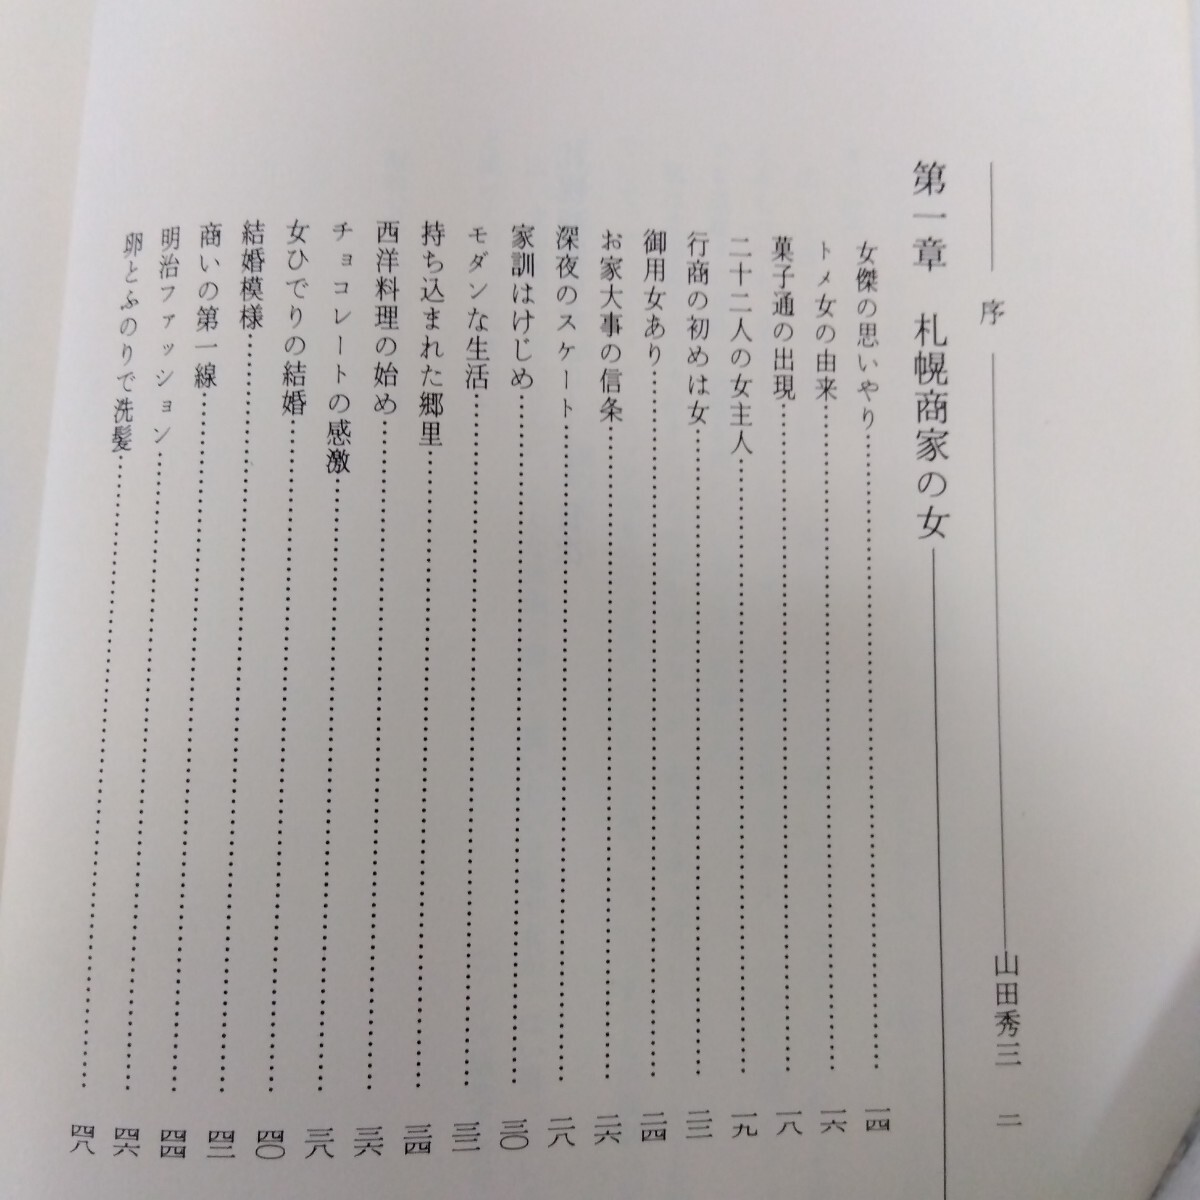 序 山田秀三 二
第一章 札幌商家の女
女傑の思いやり……一四
トメ女の由来……一六
菓子通の出現……一八
二十二人の女主人……一九
行商の初めは女……二二
御用女あり……二四
お家大事の信条……二六
深夜のスケート……二八
家訓はけじめ……三〇
モダンな生活……三二
持ち込まれた郷里……三四
西洋料理の始め……三六
チョコレートの感激……三八
女ひでりの結婚……四〇
結婚模様……四二
商いの第一線……四四
明治ファッション……四六
卵とふのりで洗髪……四八